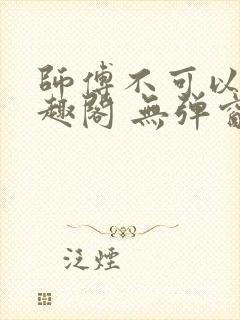 師傅不可以
趣閣 無彈窗
泛煙